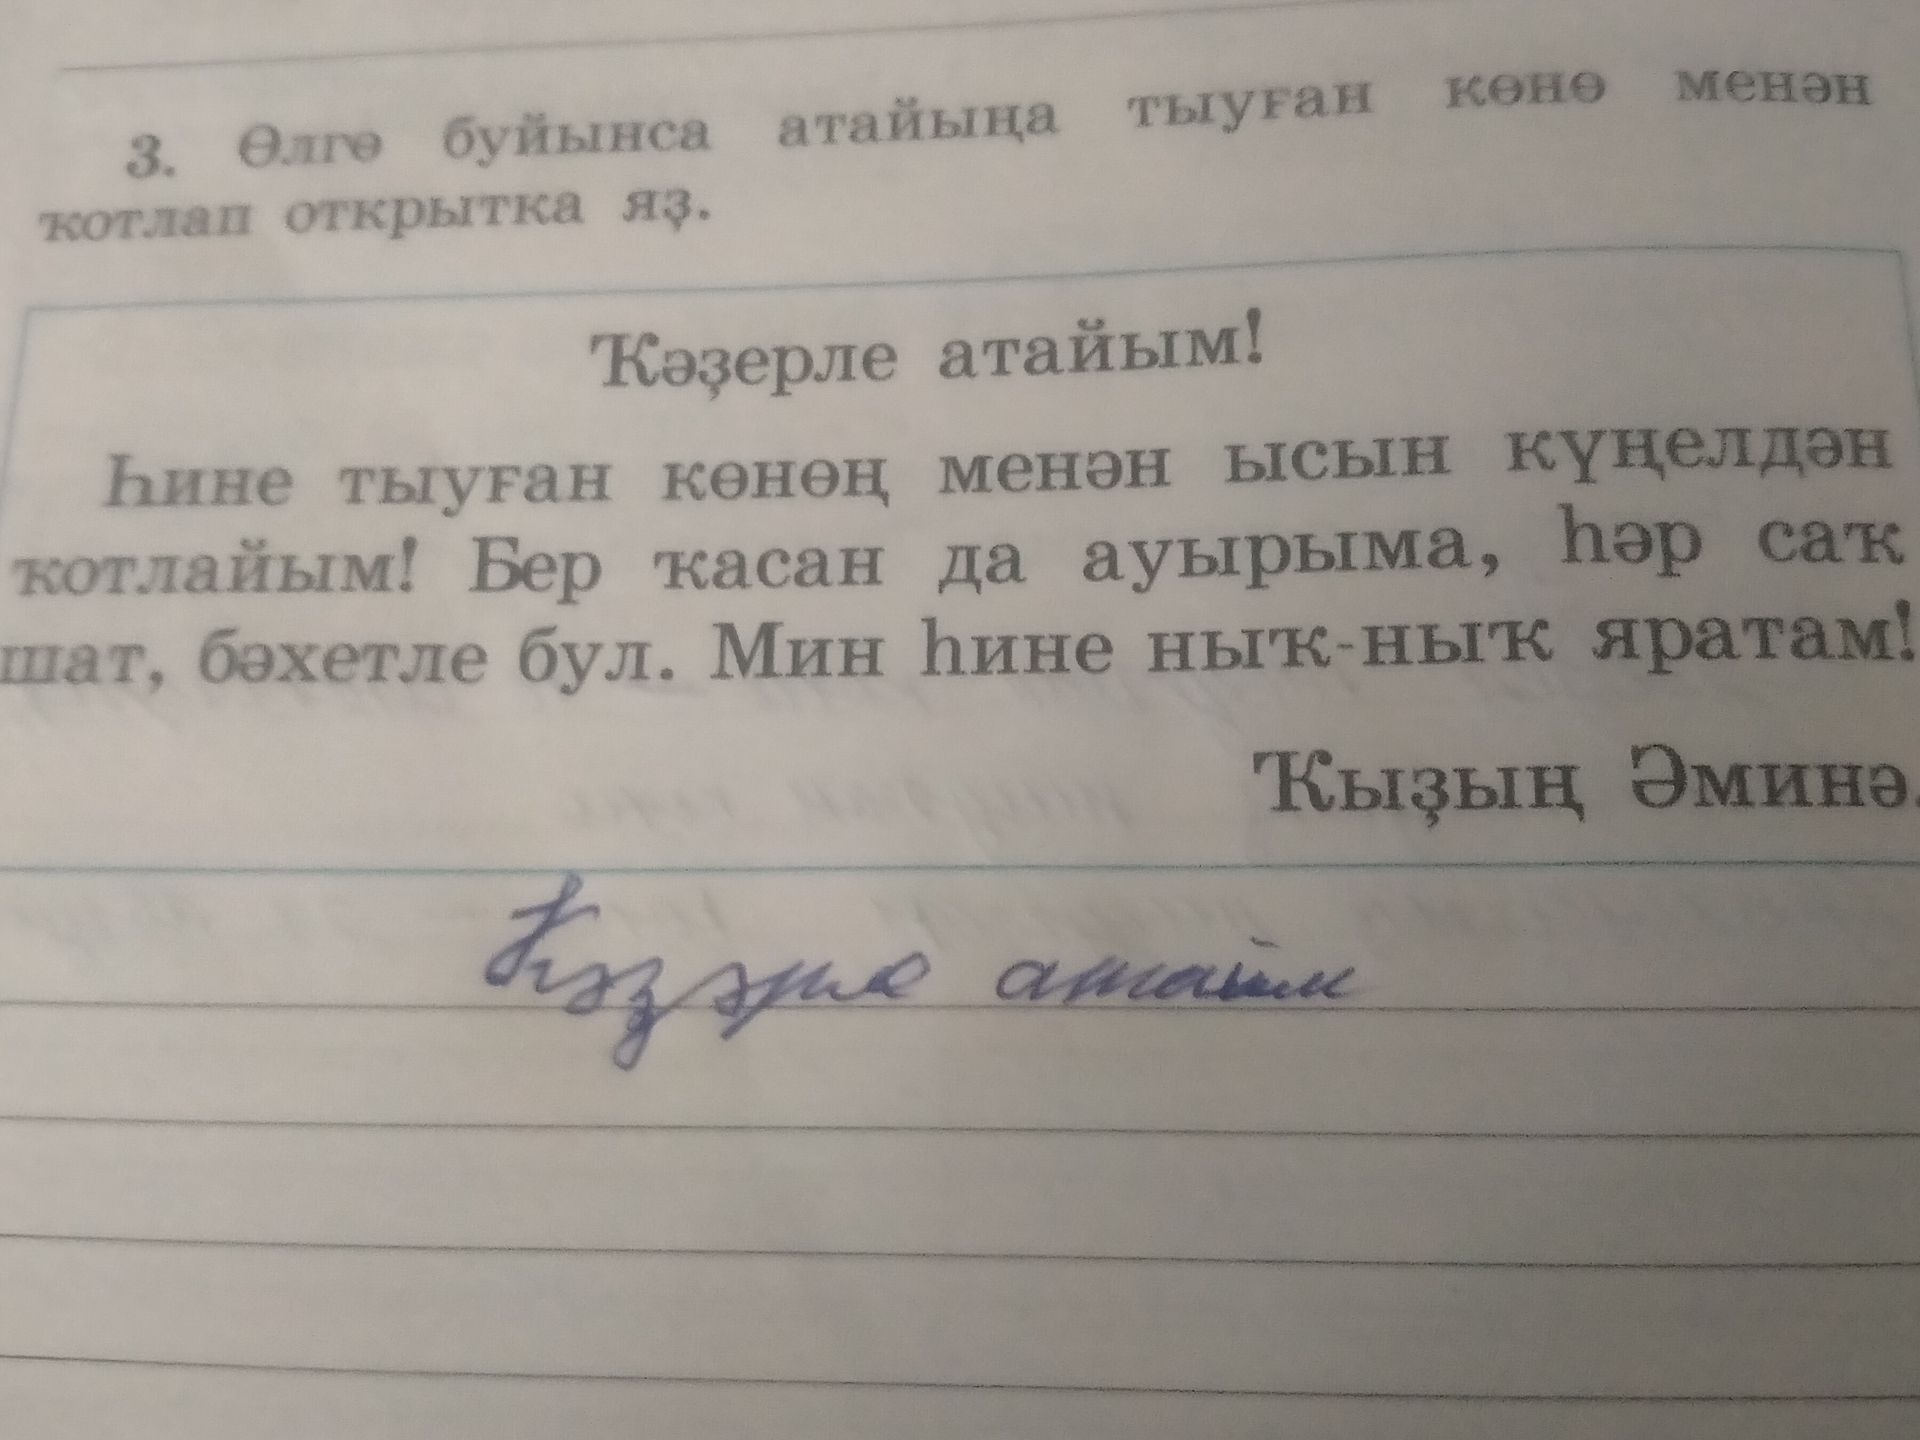 3. Өлгө буйынса атайыңа тыуған көнө менән
ҡотлап открытка яҙ.
Ҡәҙерле атайым!
Һине тыуған көнөң менән ысын күңелдән
ҡотлайым! Бер ҡасан да ауырыма, һәр саҡ
шат, бәхетле бул. Мин һине ныҡ-ныҡ яратам!
Ҡыҙың Әминә.
атайым